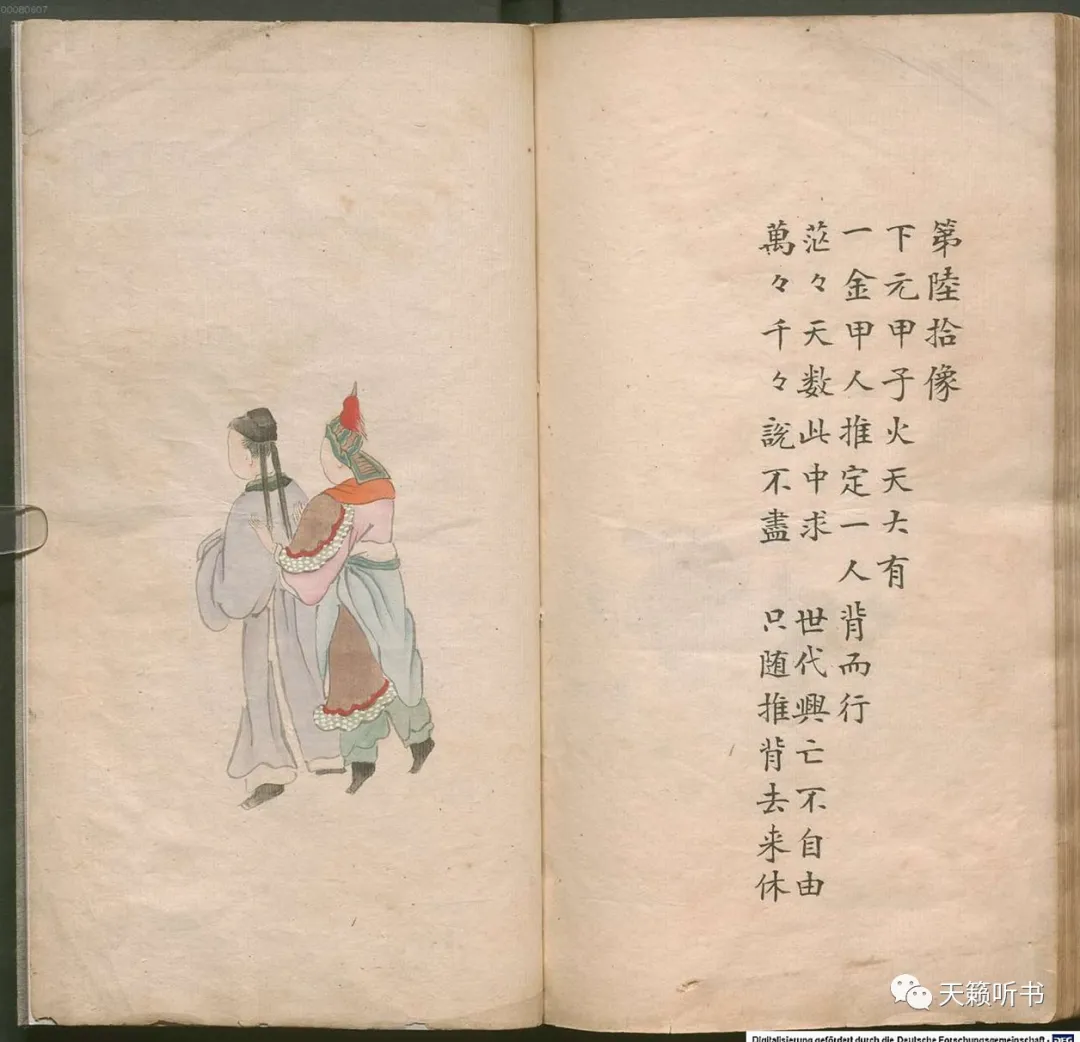 第陸拾像
下元甲子火天大有
一金甲人推定一人背而行
茫々天数此中求 世代興亡不自由
萬々千々說不盡 只随推背去来休
天籁听书
Digitalisierung gefördert durch die Deutsche Forschungsgemeinschaft - DFG